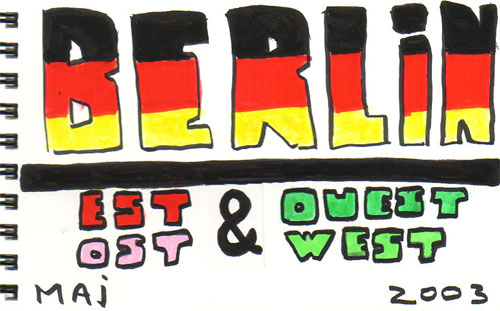 BERLiN
EST & OUEST
OST WEST
MAj 2003